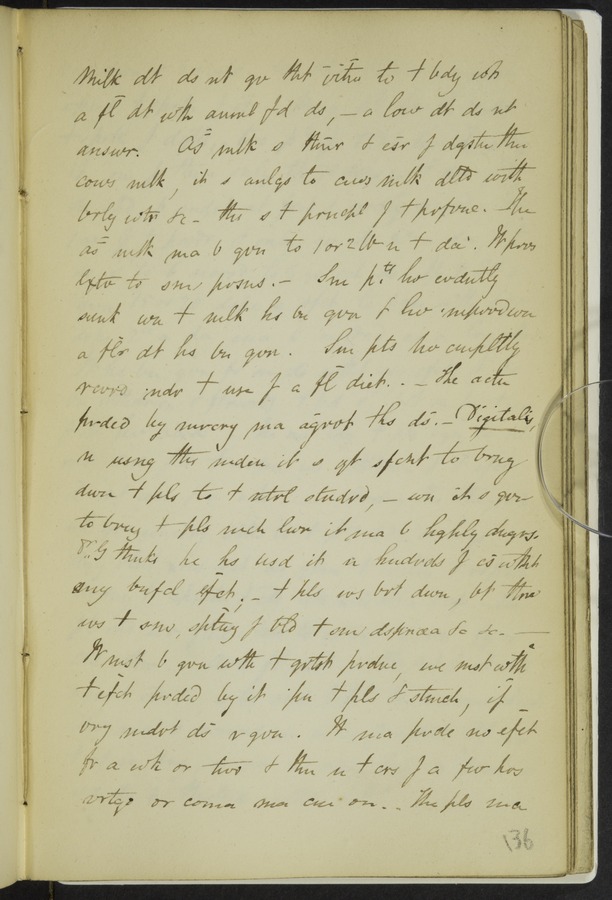 Milk dt ds nt gv tht vitā to t bdy wh
a fl dt wth anml fd ds, – a low dt ds nt
answr. As mlk s thnr & esr f dgstn thn
cows mlk, it s anlgs to cws milk dltd with
brly wtr &c – ths s t prncpl f t prfrnc. The
as mlk ma b gvn to 1 or 2 lb n t da. It provs
lxtv to sm prsns. – Sm pts hv evdntly
sunk wn t mlk hs bn gvn & hv improvd wn
a fllr dt hs bn gvn. Sm pts hv cmpltly
rcvrd undr t use f a fl diet. – The actn
prdcd by mrcry ma agrvt ths ds. – Digitalis,
n usng ths mdcn it s gt sfcnt to brng
dwn t pls to t ntrl studrd, – wn it s gvn
to brng t pls mch lwr it ma b highly dngrs.
Dr G thnks he hs usd it n hndrds f cs wtht
any bnfcl efct; – t pls ws brt dwn, bt thr
ws t sm, spttng f bld t sm dspnœa &c &c. —
It must b gvn wth t grtst prdnc, we mst wtch
t efct prdcd by it pn t pls & stmch, if
vry mdrt ds r gvn. It ma prdc no efct
fr a wk or two & thn n t crs f a fw hrs
vrtgo or coma ma cm on. . The pls ma
136